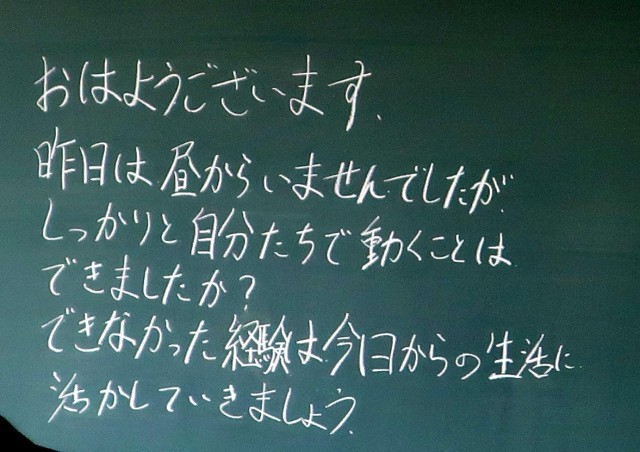 おはようございます.
昨日は昼からいませんでしたが
しっかりと自分たちで動くことは
できましたか?
できなかった経験は今日からの生活に
活かしていきましょう.